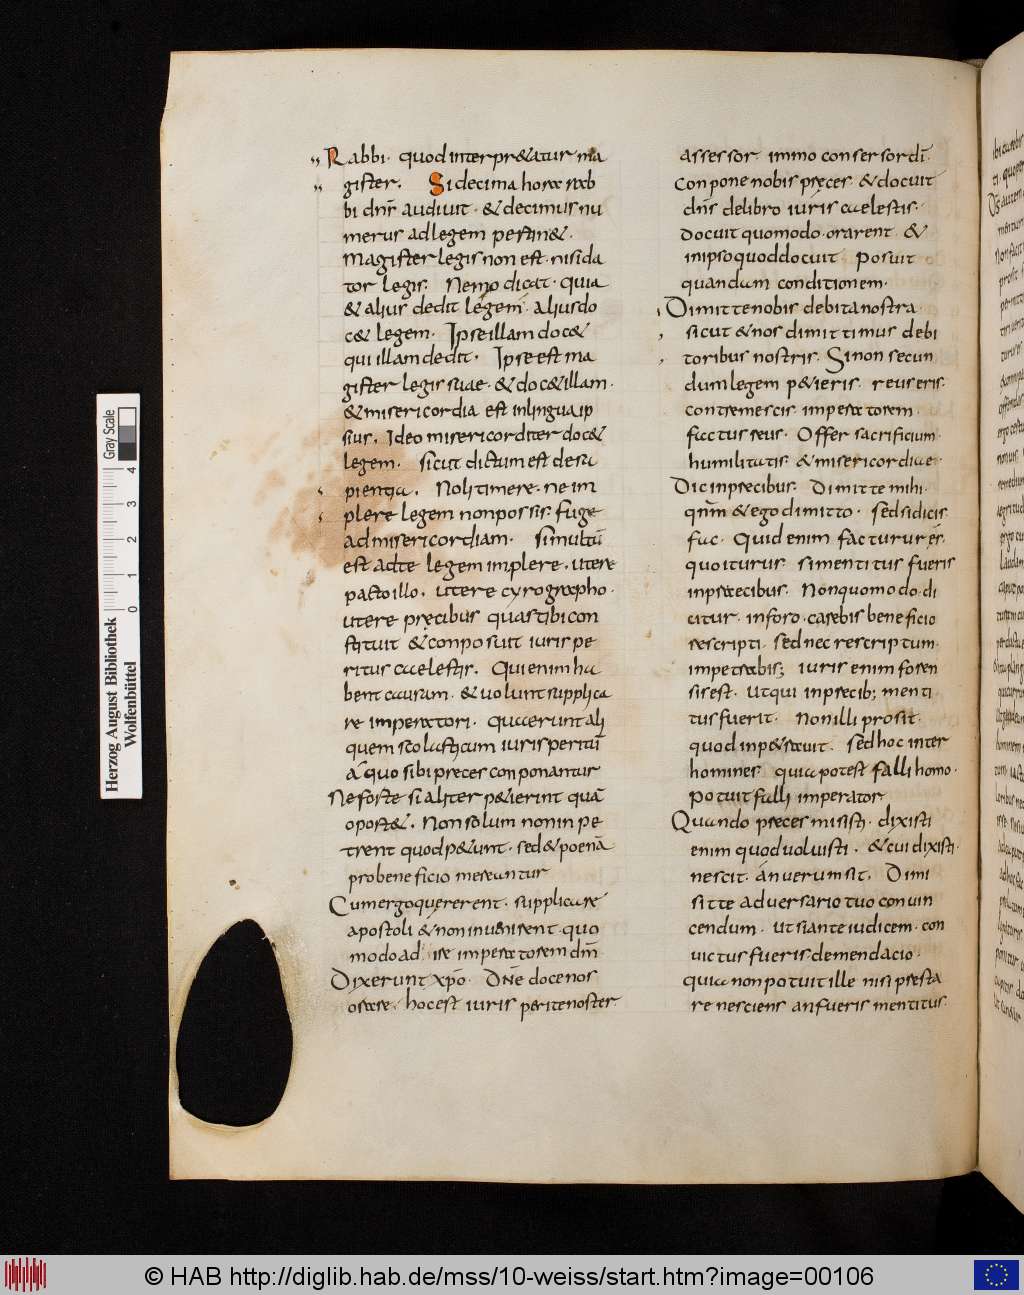 Rabbi· quod interpr&atur· ma
gister. Si decima hora rab
bi dn̄s audiuit· & decimus nu
merus ad legem pertin&·
Magister legis non est· nisi da
tor legis. Nemo dicat· quia
& alius dedit legem· alius do
c& legem· Ipse illam doc&
qui illam dedit· Ipse est ma
gister legis suae· & doc& illam·
& misericordia est in lingua ip
sius. Ideo misericorditer doc&
legem· sicut dictum est de sa
pientia. Noli timere· ne im
plere legem non possis. fuge
ad misericordiam· si multū
est ad te legem implere. utere
pacto illo. utere cyrographo·
utere pręcibus quas tibi con
stituit & composuit iuris pe
ritus caelestis. Qui enim ha
bent causam· & uolunt supplica
re imperatori· Quaerunt ali
quem scolasticum iuris peritū
a quo sibi preces componantur
Ne forte si aliter p&ierint quā
oport&. Non solum non inpe
trent quod p&unt· sed & poenā
pro beneficio mereantur
Cum ergo quererent· supplicare
apostoli & non inuenirent quo
modo ad ire imperatorem dm̄
Dixerunt xp̄o· Dn̄e doce nos
orare. hoc est iuris perite noster
assessor immo consersor dī·
Conpone nobis pręces & docuit
dn̄s de libro iuris caelestis·
Docuit quomodo orarent· &
in ipso quod docuit posuit
quandam conditionem·
Dimitte nobis debita nostra
sicut & nos dimittimus debi
toribus nostris· Si non secun
dum legem p&ieris· reus eris·
contremescis imperatorem
factus reus· Offer sacrificium
humilitatis & misericordiae·
Dic in precibus· Dimitte mihi·
qn̄m & ego dimitto· sed si dicis
fac· Quid enim facturus es·
quo iturus si mentitus fueris
in precibus· Non quomodo di
citur· in foro· carebis beneficio
rescripti· sed nec rescriptum
impetrabis; iuris enim foren
sis est· ut qui in precib; menti
tus fuerit· non illi prosit
quod inp&rauit· sed hoc inter
homines· quia potest falli homo·
Potuit falli imperator
Quando preces misisti· dixisti
enim quod uoluisti. & cui dixisti·
nescit· an uerum sit. Dimi
sit te aduersario tuo conuin
cendum· ut si ante iudicem· con
uictus fueris de mendacio·
quia non potuit ille nisi presta
re nesciens an fueris mentitus·
Gray Scale
0 1 2 3 4
Herzog August Bibliothek
Wolfenbüttel
© HAB http://diglib.hab.de/mss/10-weiss/start.htm?image=00106